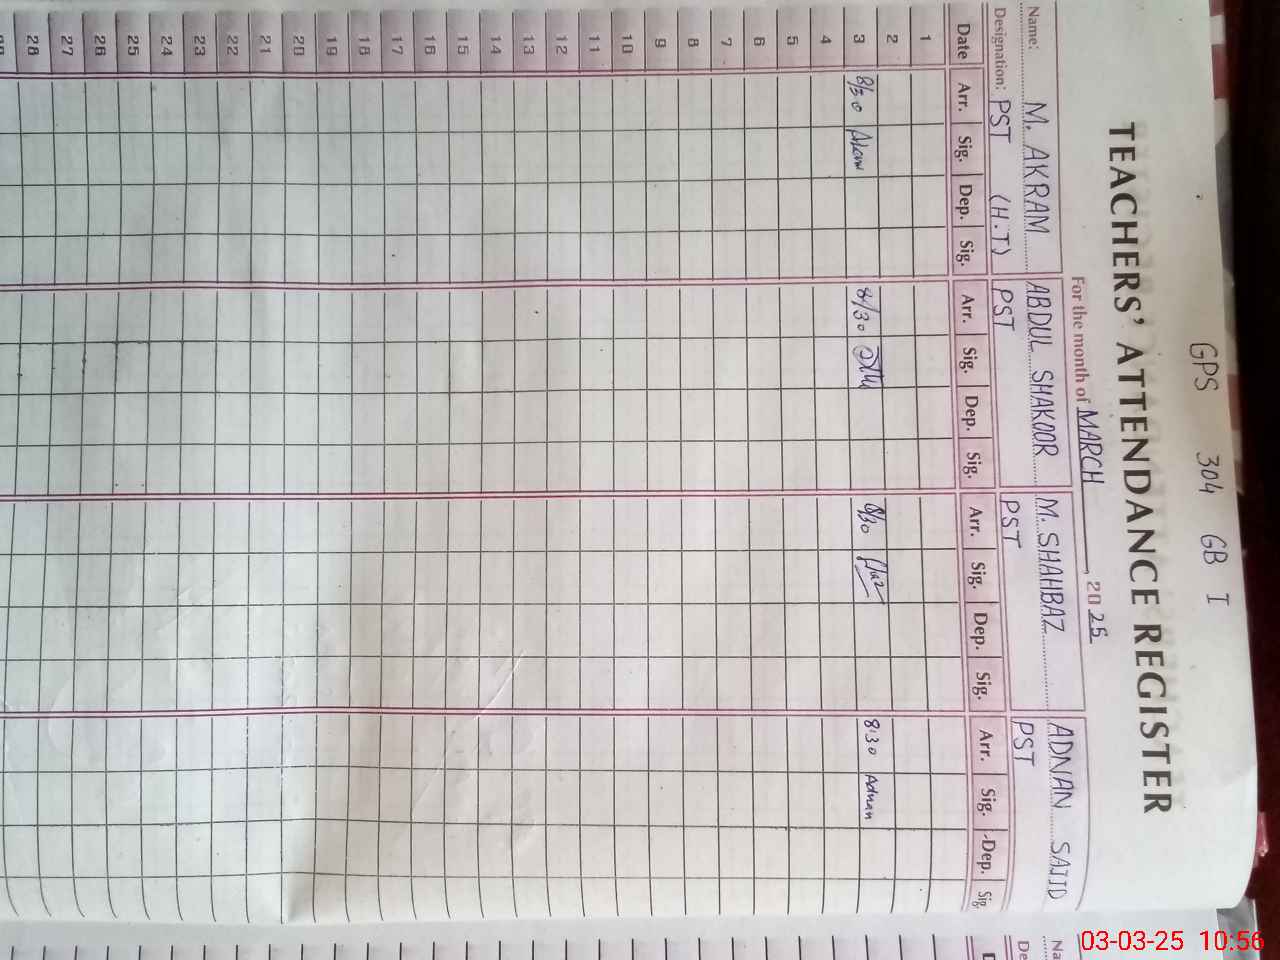 GPS 304 GB I
TEACHERS' ATTENDANCE REGISTER
For the month of MARCH, 2025
Name: M. AKRAM ABDUL SHAKOOR M. SHAHBAZ ADNAN SAJID
Designation: PST (H.T) PST PST PST
Date Arr. Sig. Dep. Sig. Arr. Sig. Dep. Sig. Arr. Sig. Dep. Sig. Arr. Sig. Dep. Sig.
1
2
3 8/30 Akram 8/30 8/30 8:30 Adnan
4
5
6
7
8
9
10
11
12
13
14
15
16
17
18
19
20
21
22
23
24
25
26
27
28
03-03-25 10:56